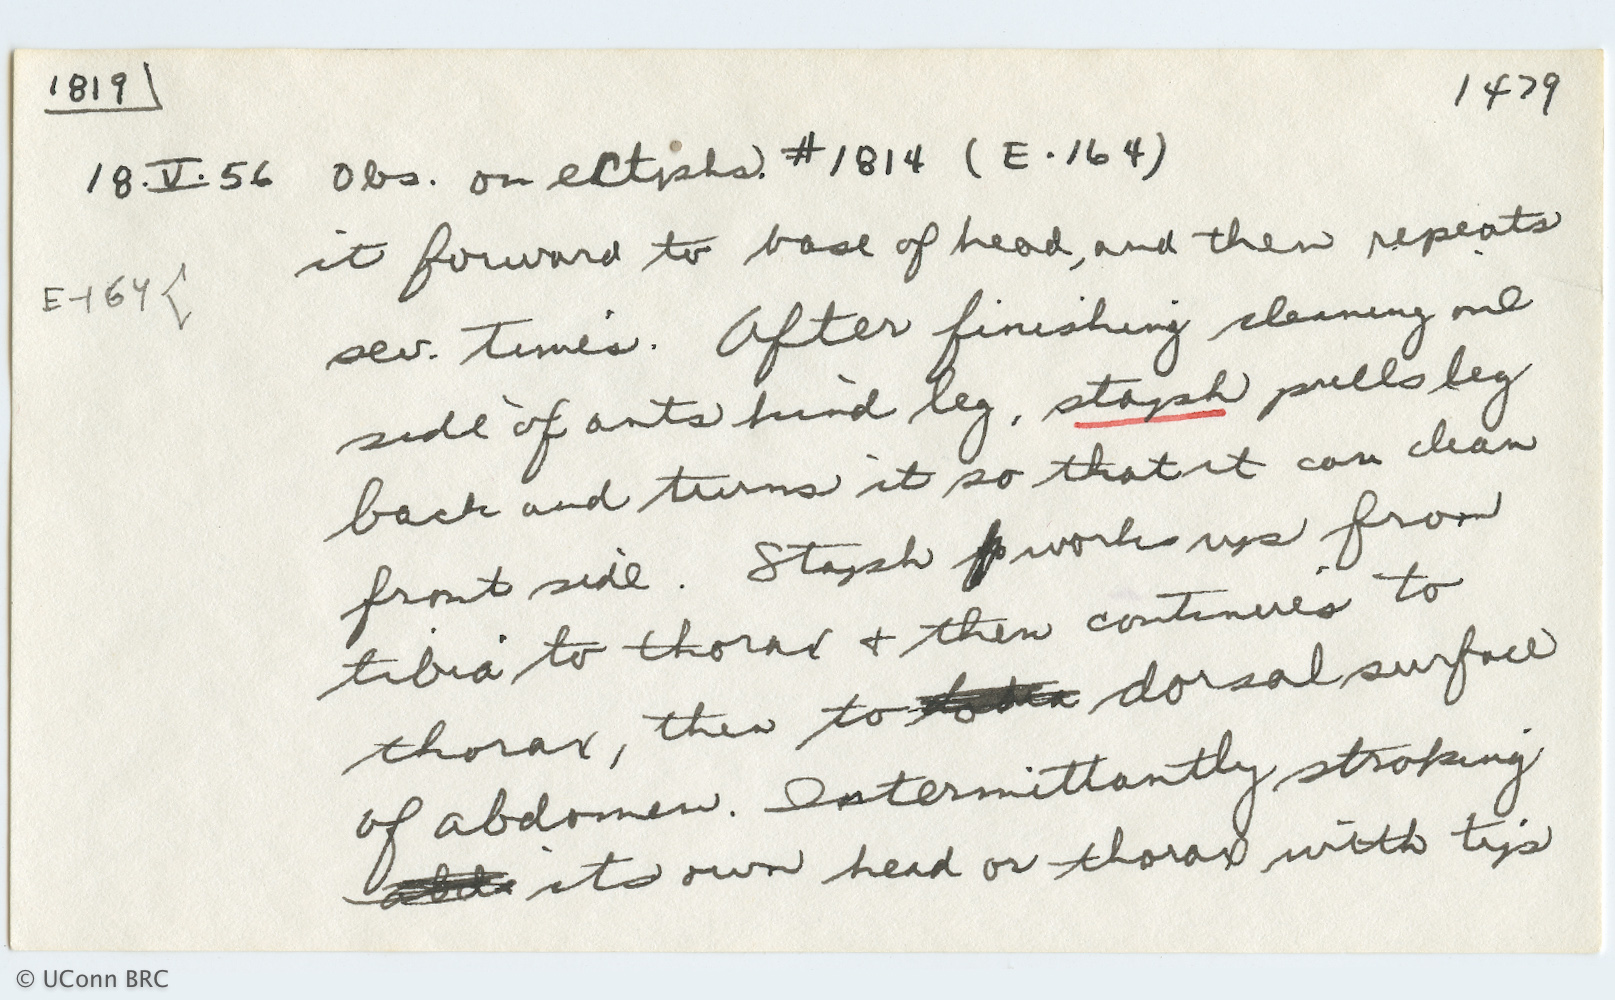 1819 1479
18.V.56 Obs. on ectophs. #1814 (E-164)
it forward to base of head, and then repeats
E-164
sev. times. After finishing cleaning one
side of ants hind leg, staph pulls leg
back and turns it so that it can clean
front side. Staph works up from
tibia to thorax + then continues to
thorax, then to dorsal surface
of abdomen. Intermittantly stroking
its own head or thorax with tip
© UConn BRC